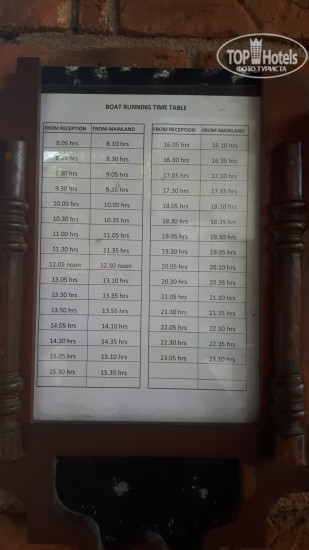 TOP Hotels
ФОТО ТУРИСТА
BOAT RUNNING TIME TABLE
FROM RECEPTION FROM MAINLAND FROM RECEPTION FROM MAINLAND
8.05 hrs 8.10 hrs 16.05 hrs 16.10 hrs
8.30 hrs 16.30 hrs 16.35 hrs
9.00 hrs 9.05 hrs 17.05 hrs 17.10 hrs
9.30 hrs 9.35 hrs 17.30 hrs 17.35 hrs
10.00 hrs 10.05 hrs 18.05 hrs 18.10 hrs
10.30 hrs 10.35 hrs 18.30 hrs 18.35 hrs
11.00 hrs 11.05 hrs 19.05 hrs 19.10 hrs
11.30 hrs 11.35 hrs 19.30 hrs 19.35 hrs
12.05 noon 12.10 noon 20.05 hrs 20.10 hrs
13.05 hrs 13.10 hrs 20.30 hrs 20.35 hrs
13.30 hrs 13.35 hrs 21.05 hrs 21.10 hrs
13.50 hrs 13.55 hrs 21.30 hrs 21.35 hrs
14.05 hrs 14.10 hrs 22.05 hrs 22.10 hrs
14.30 hrs 14.35 hrs 22.30 hrs 22.35 hrs
15.05 hrs 15.10 hrs 23.05 hrs 23.10 hrs
15.30 hrs 15.35 hrs